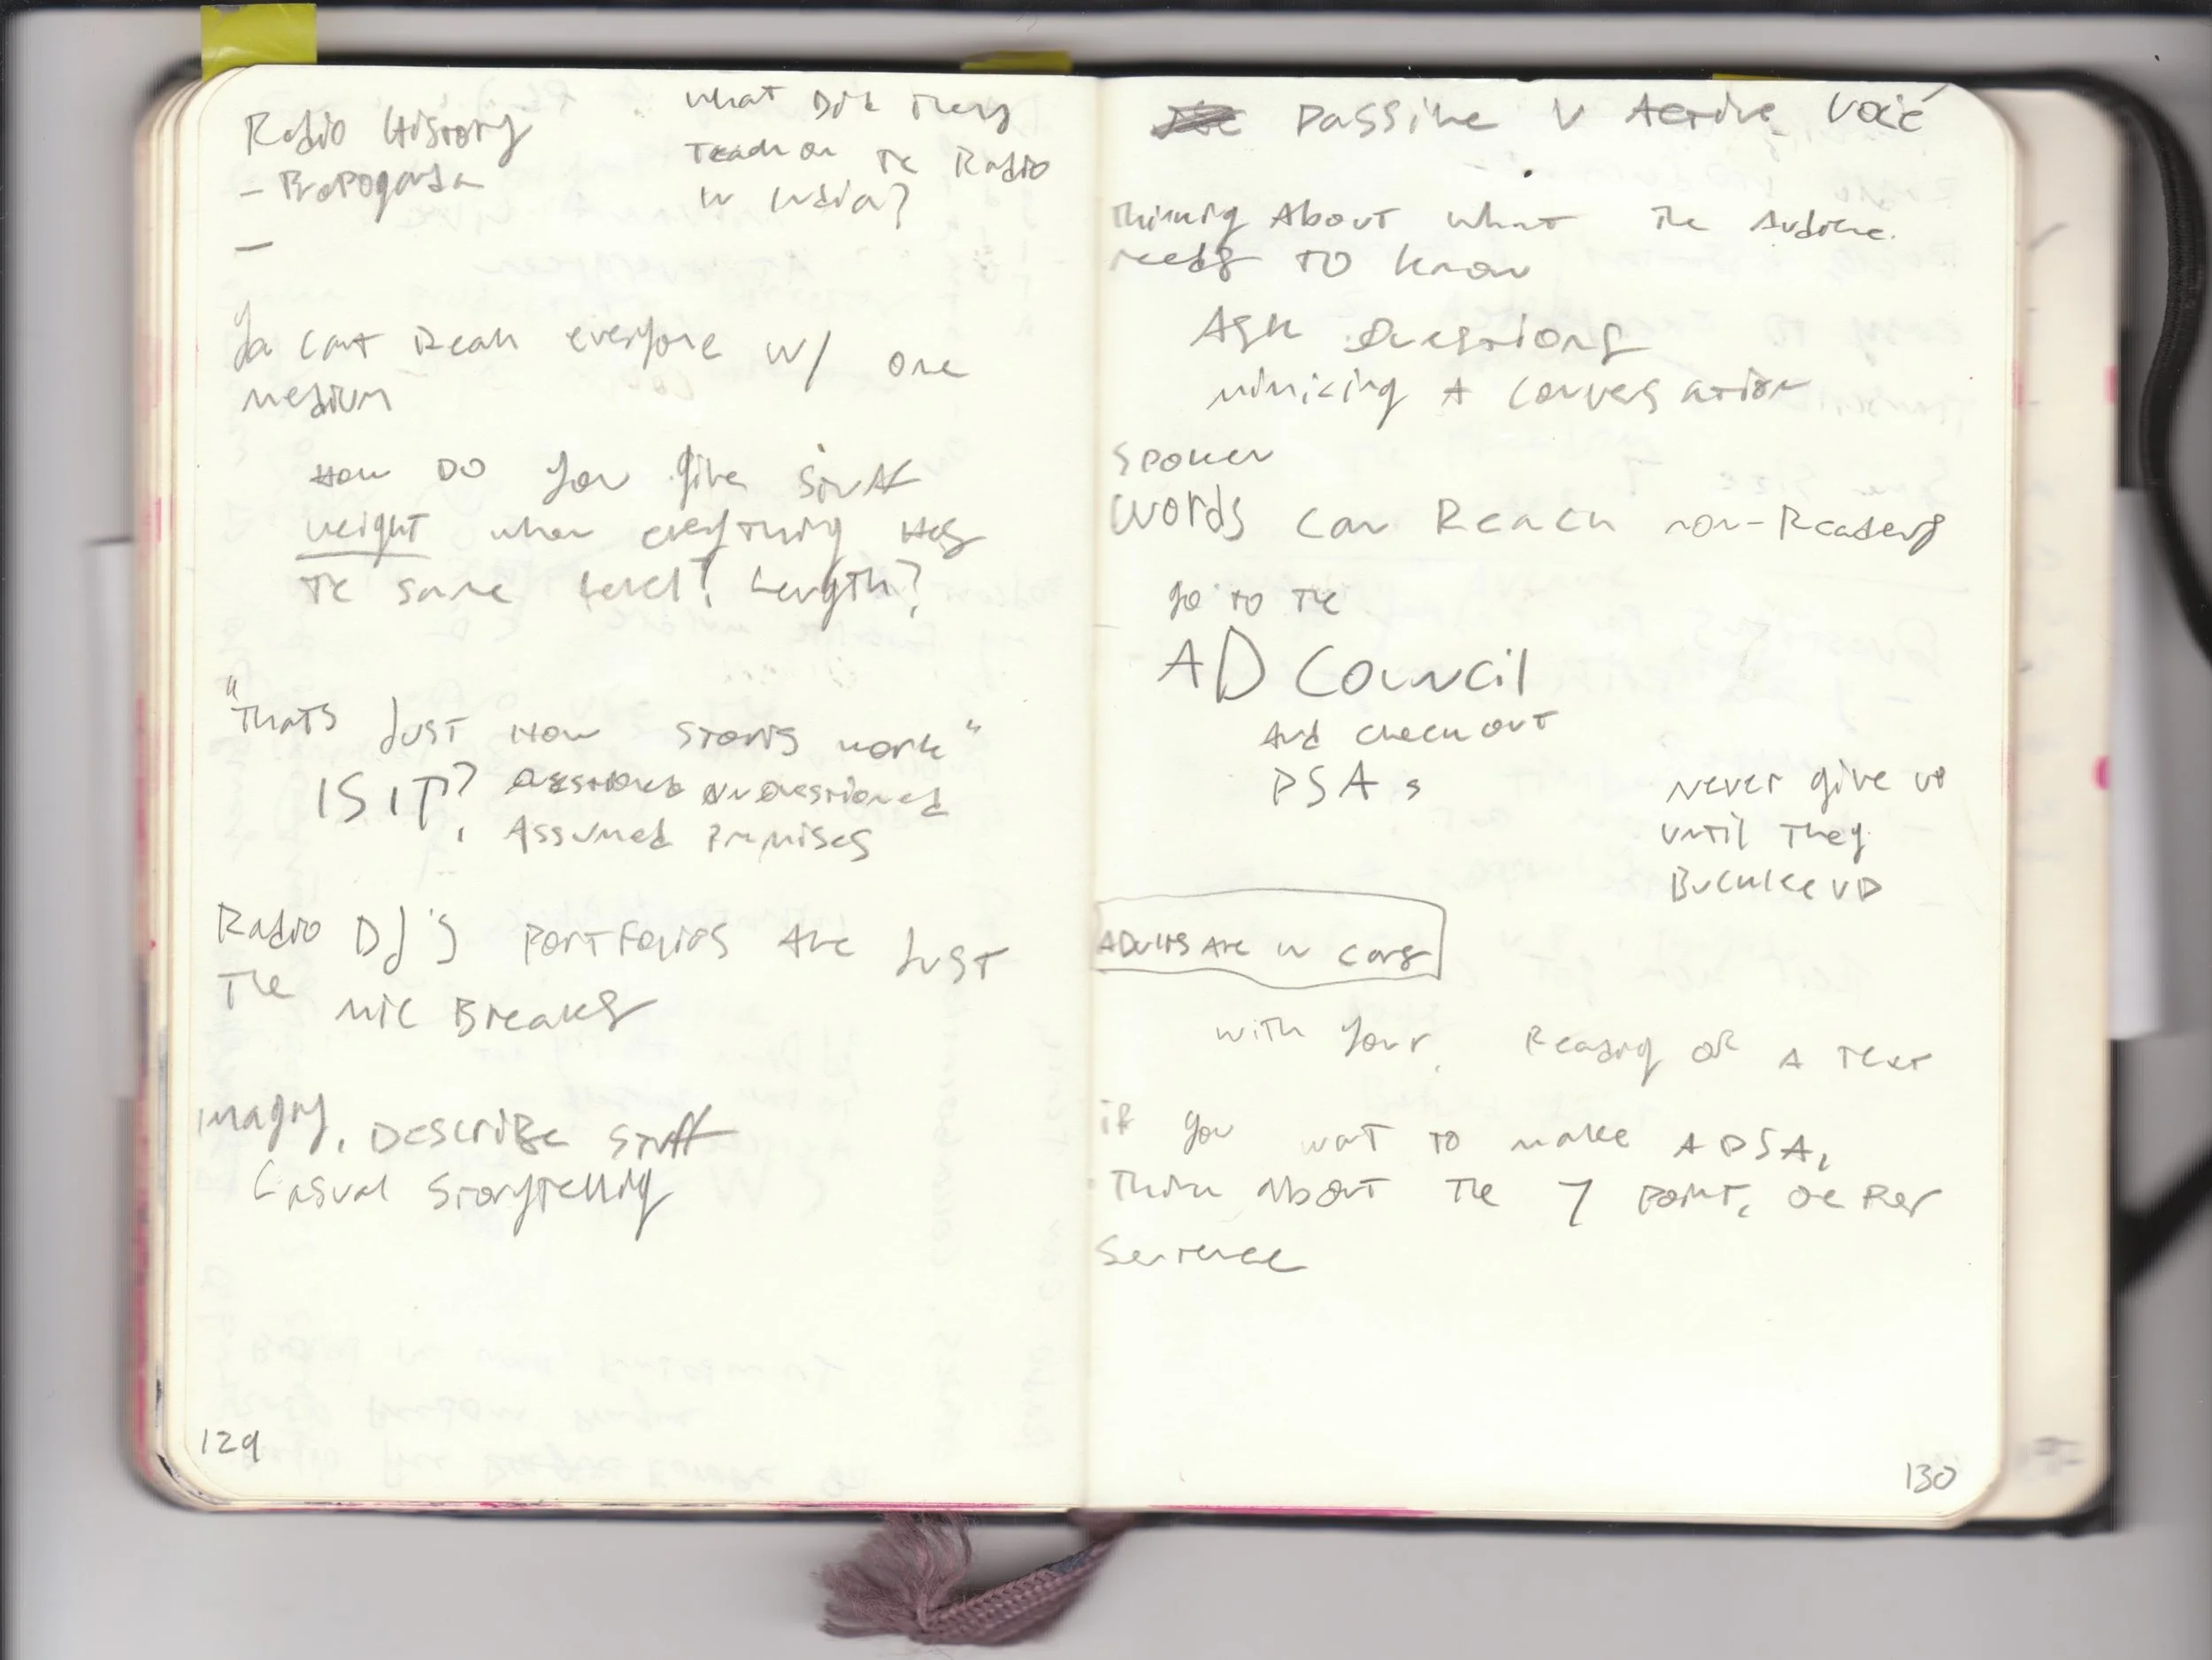 Radio History
- Propoganda
-
What Did They
Teach on the Radio
in India?
You cant Reach everyone w/ one
medium
How DO you give stuff
weight when everything Has
the same level? Length?
"Thats Just How stories work"
IS IT? Questions unquestioned
Assumed Premises
Radio DJ's Portfolios Are Just
The Mic Breaks
Imagry, Describe Stuff
Casual Storytelling
129
Passive V Active Voice
Thinking About what the Audience
needs to know
Ask Questions
mimicing A conversation
Spoken
Words can Reach non-Readers
go to the
AD Council
And check out
PSAs
Never give up
until they
Buckle up
Adults Are in cars
with your Reading of A Text
if you want to make A PSA,
Think about the 7 point, one per
Sentence
130